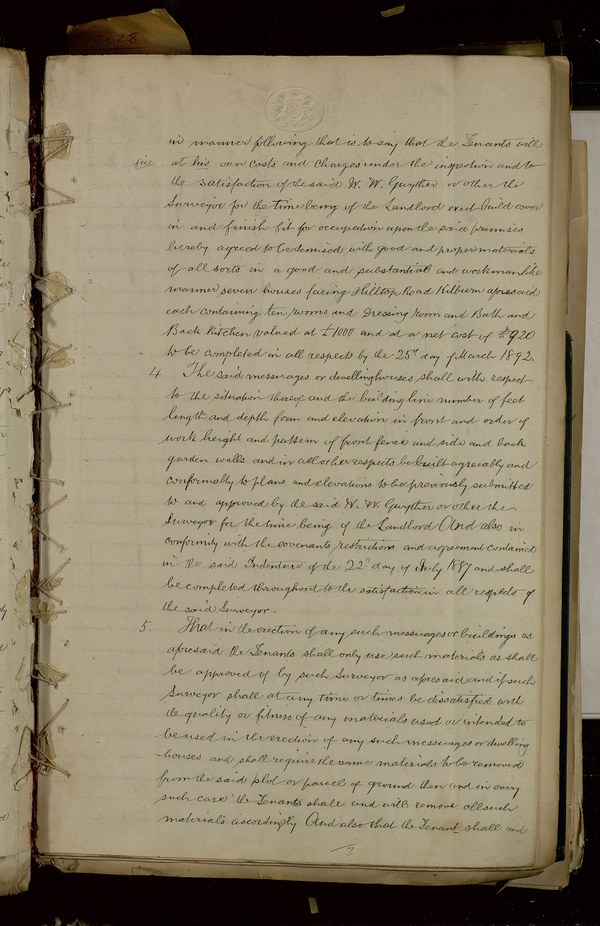 in manner following that is to say that the Tenants will
sic at his own costs and charges under the inspection and to
the satisfaction of the said W. W. Gwyther or other the
Surveyor for the time being of the Landlord erect build cover
in and finish fit for occupation upon the said premises
hereby agreed to be demised with good and proper materials
of all sorts in a good and substantial and workmanlike
manner seven houses facing Hilltop Road Kilburn aforesaid
each containing ten rooms and Dressing room and Bath and
Back Kitchen valued at £1000 and at a net cost of £920
to be completed in all respects by the 25th day of March 1892.
4 The said messuages or dwellinghouses shall with respect
to the situation thereof and the building line number of feet
length and depth form and elevation in front and order of
work height and pattern of front fence and side and back
garden walls and in all other respects be built agreeably and
conformably to plans and elevations to be previously submitted
to and approved by the said W. W. Gwyther or other the
Surveyor for the time being of the Landlord And also in
conformity with the covenants restrictions and agreement contained
in the said Indenture of the 22d day of July 1887 and shall
be completed throughout to the satisfaction in all respects of
the said Surveyor.
5. That in the erection of any such messuages or buildings as
aforesaid the Tenants shall only use such materials as shall
be approved of by such Surveyor as aforesaid and if such
Surveyor shall at any time or times be dissatisfied with
the quality or fitness of any materials used or intended to
be used in the erection of any such messuages or dwelling
houses and shall require the same materials to be removed
from the said plot or parcel of ground then and in every
such case the Tenants shall and will remove all such
materials accordingly And also that the Tenant shall and
3